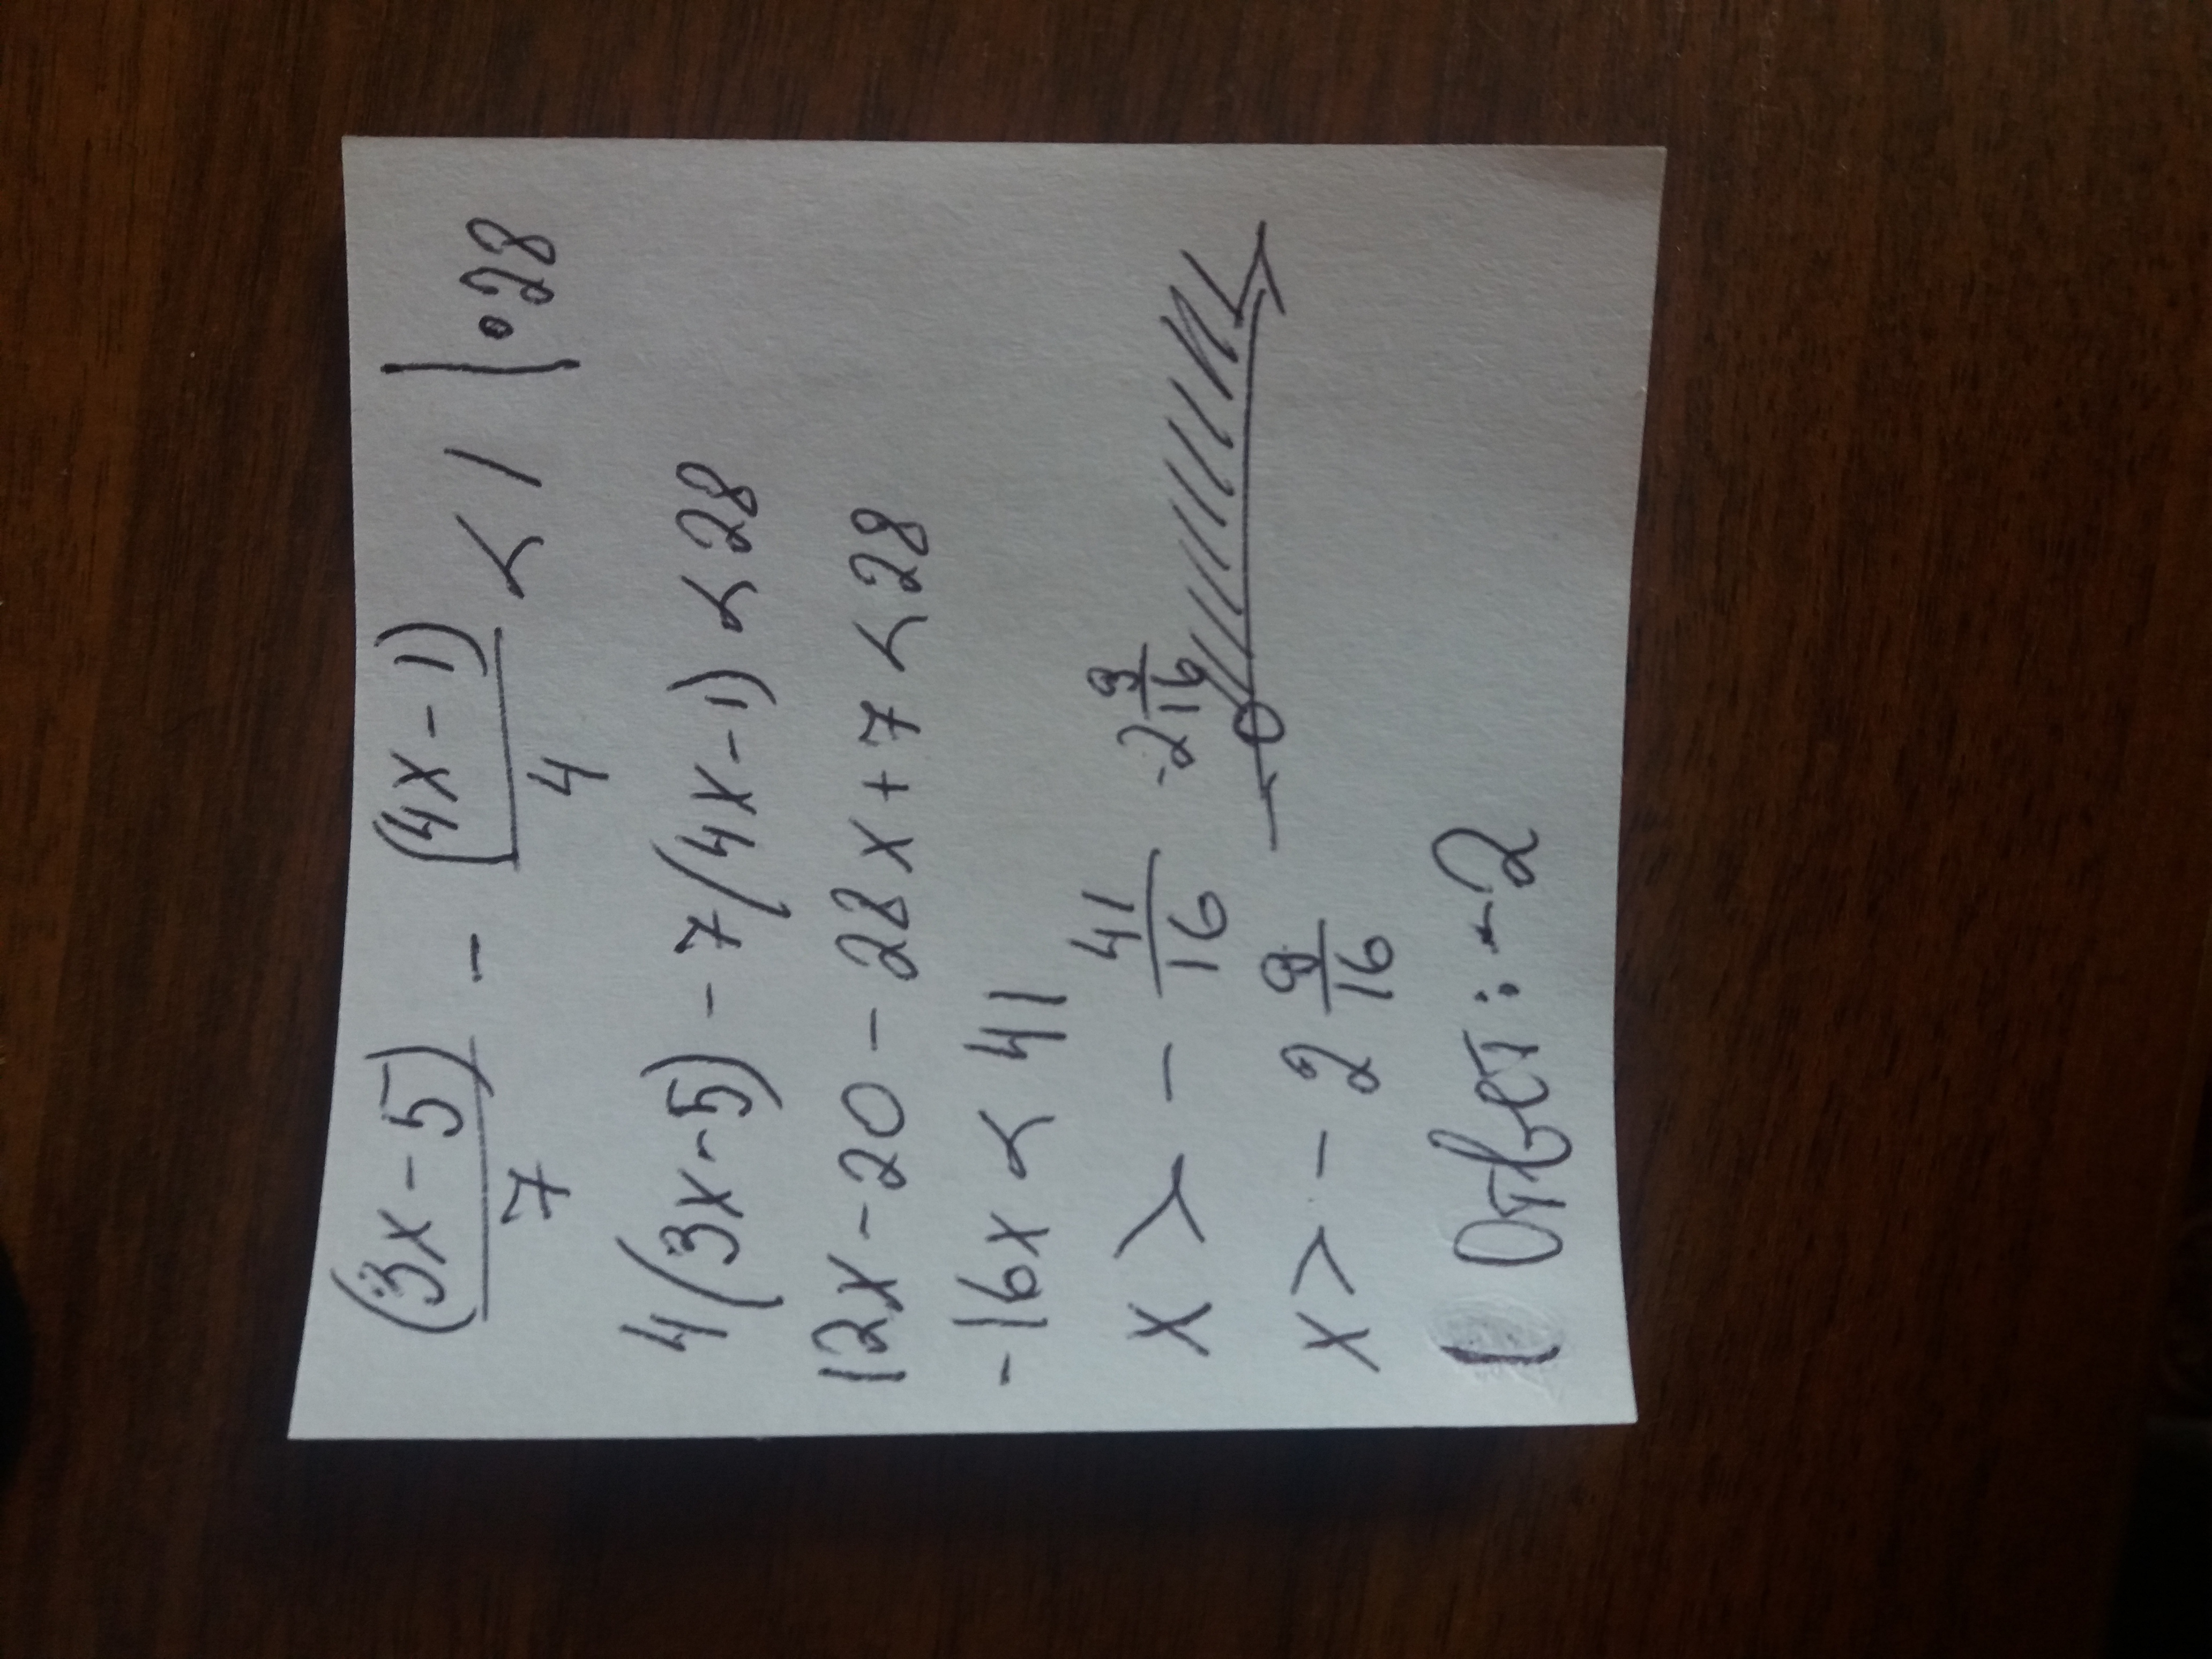 (3x-5)/7 - (4x-1)/4 < 1 |·28
4(3x-5) - 7(4x-1) < 28
12x-20-28x+7<28
-16x < 41
x > - 41/16
-2 9/16
x > - 2 9/16
Ответ: -2